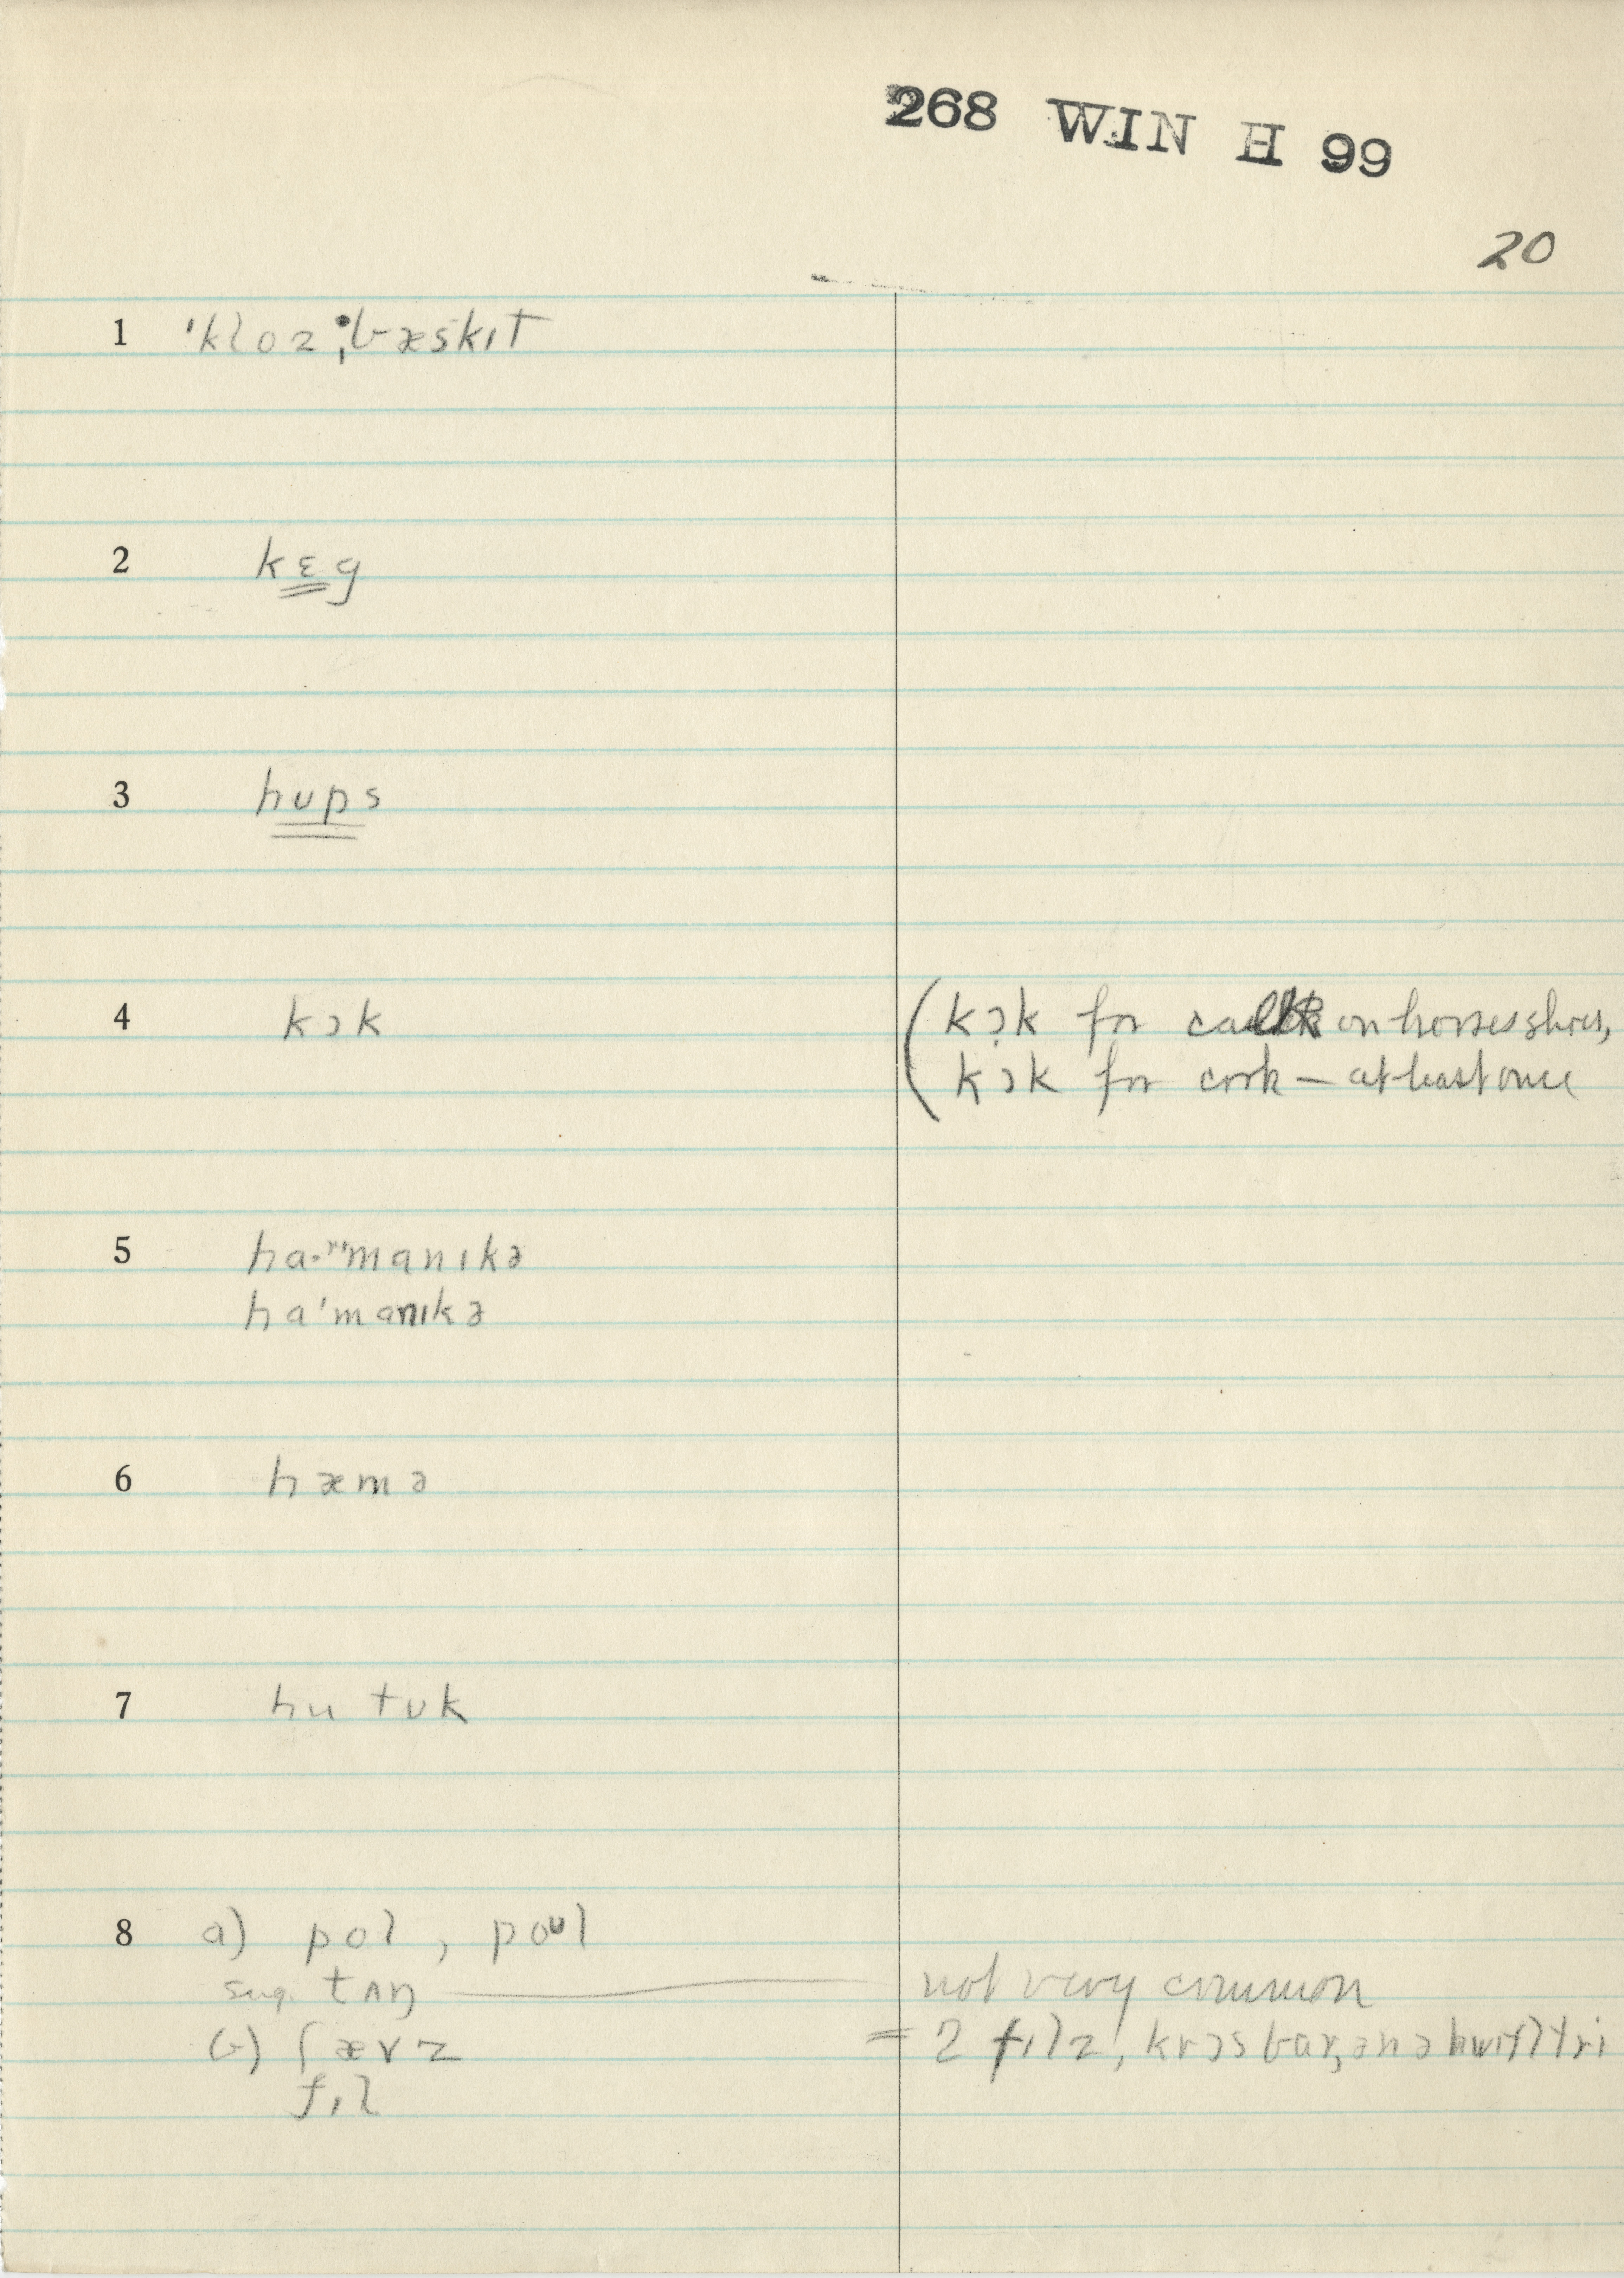 268 WIN H 99
20
1 ˈkloz ˌbæskɪt
2 kɛg
3 hups
4 kɔk (kɔk for calk on horses shoes,
kɔk for cork — at least once
5 ha·ʳˈmanɪkə
haˈmanɪkə
6 hæmə
7 hu tʊk
8 a) pol, poʊl
sug. tʌŋ — not very common
b) ʃævz = 2 fɪlz, krɔs bar,
fɪl